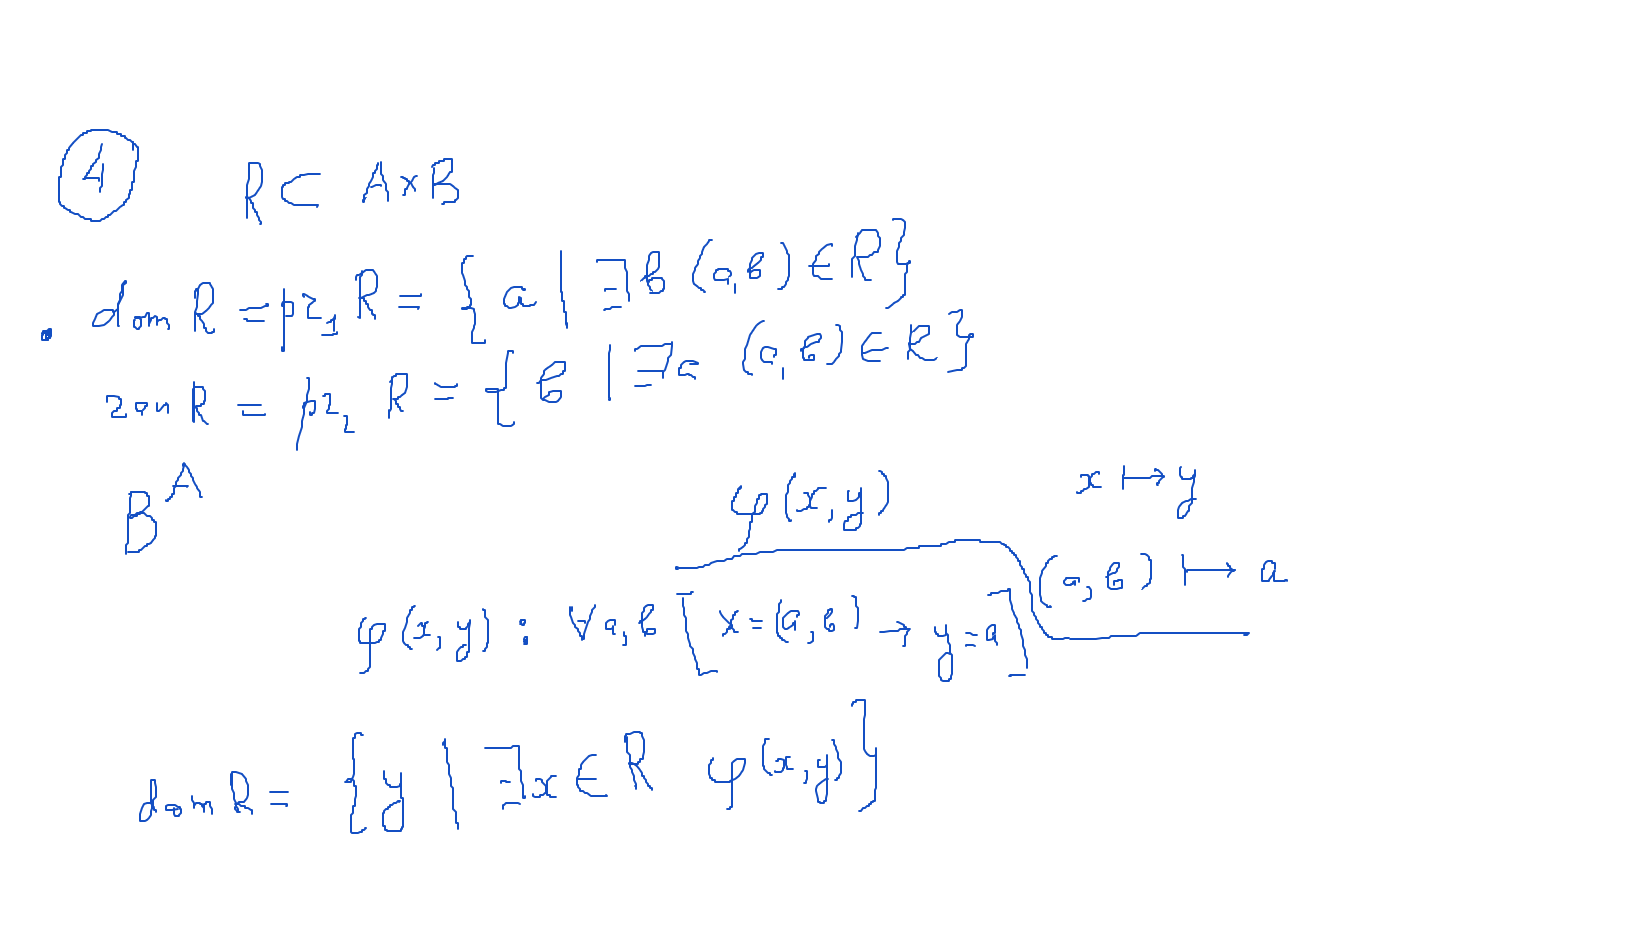 4 R ⊂ A×B
dom R = pr₁ R = { a | ∃ b (a, b) ∈ R }
ran R = pr₂ R = { b | ∃ a (a, b) ∈ R }
Bᴬ
φ(x, y) x ↦ y
(a, b) ↦ a
φ(x, y) : ∀ a, b [ x = (a, b) → y = a ]
dom R = { y | ∃ x ∈ R φ(x, y) }